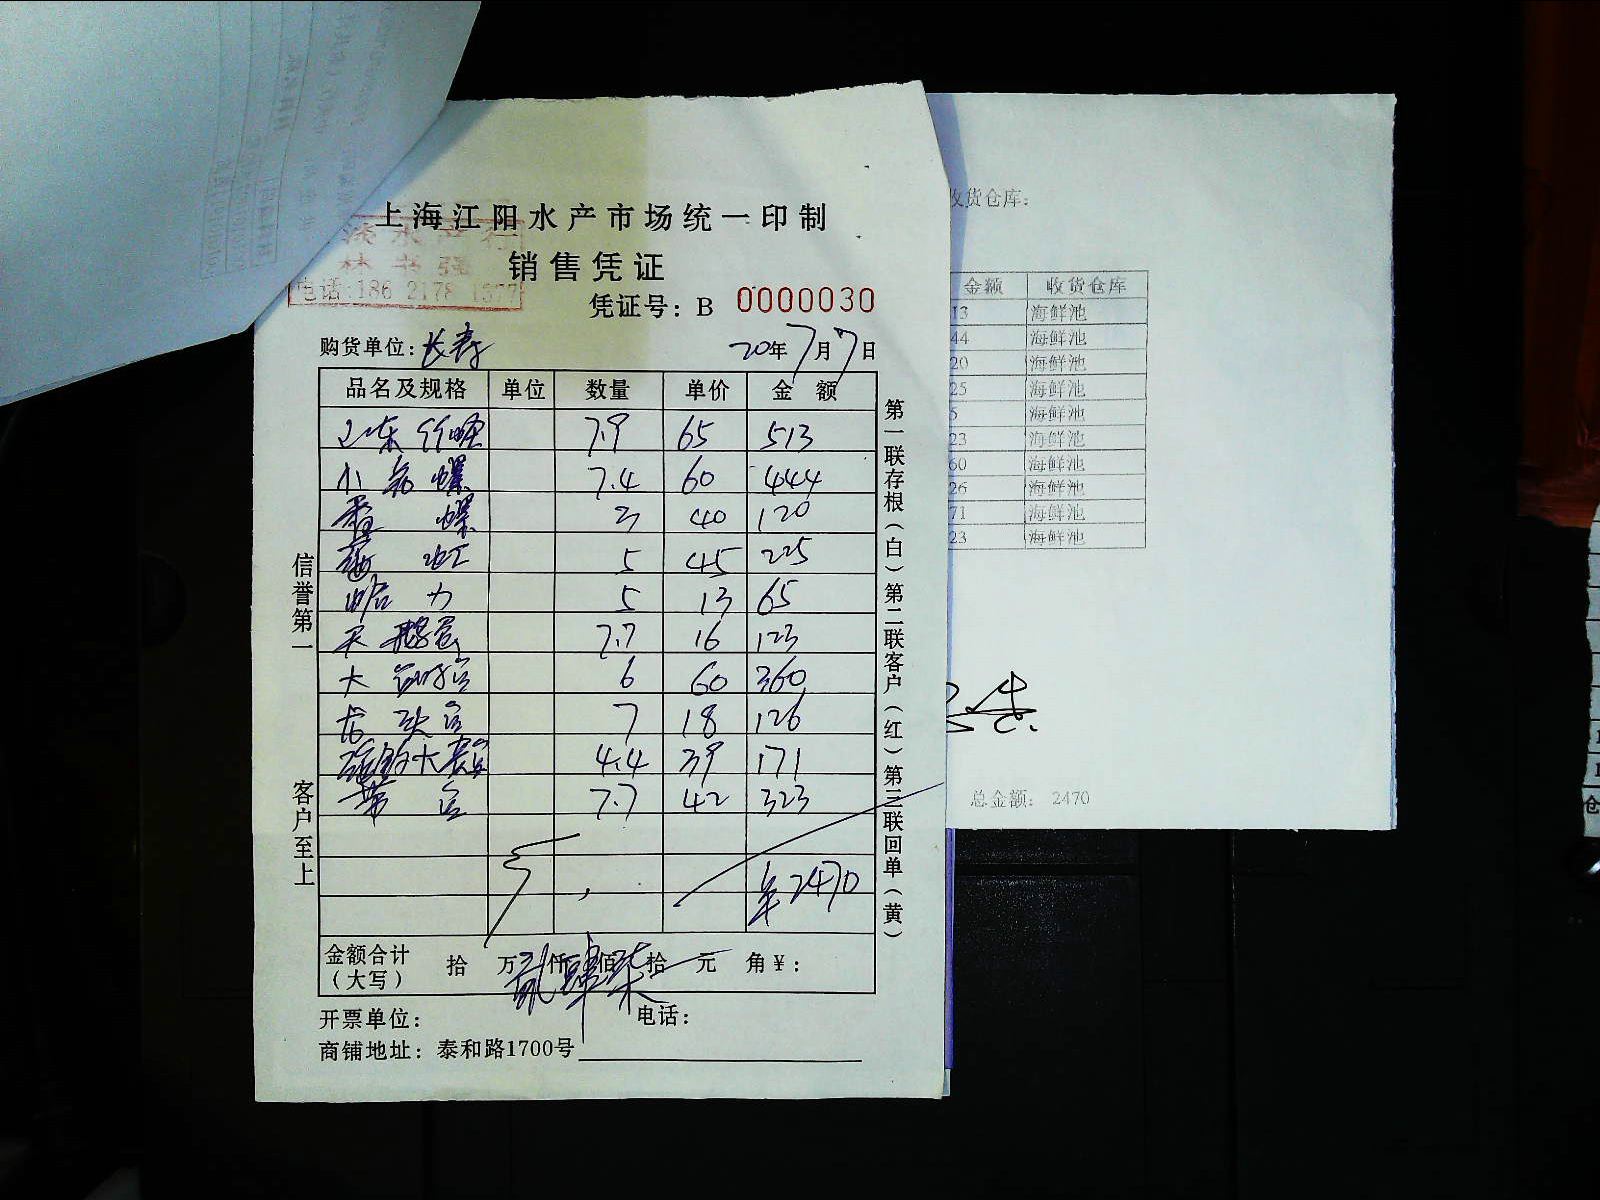 上海江阳水产市场统一印制
销售凭证
水产行
电话:186 2178 1577
凭证号: B 0000030
购货单位: 长寿 20年7月7日
品名及规格 单位 数量 单价 金额
山东 7.9 65 513
小 螺 7.4 60 444
香螺 3 40 120
5 45 225
蛤 5 13 65
天鹅蛋 7.7 16 123
大 6 60 360
龙头 7 18 126
4.4 39 171
7.7 42 323
¥2470
金额合计(大写) 拾 万 贰仟 肆佰 柒拾 元 角 ¥:
开票单位: 电话:
商铺地址: 泰和路1700号
信誉第一
客户至上
第一联存根(白)第二联客户(红)第三联回单(黄)
收货仓库:
金额 收货仓库
13 海鲜池
44 海鲜池
20 海鲜池
25 海鲜池
5 海鲜池
23 海鲜池
60 海鲜池
26 海鲜池
71 海鲜池
23 海鲜池
总金额: 2470